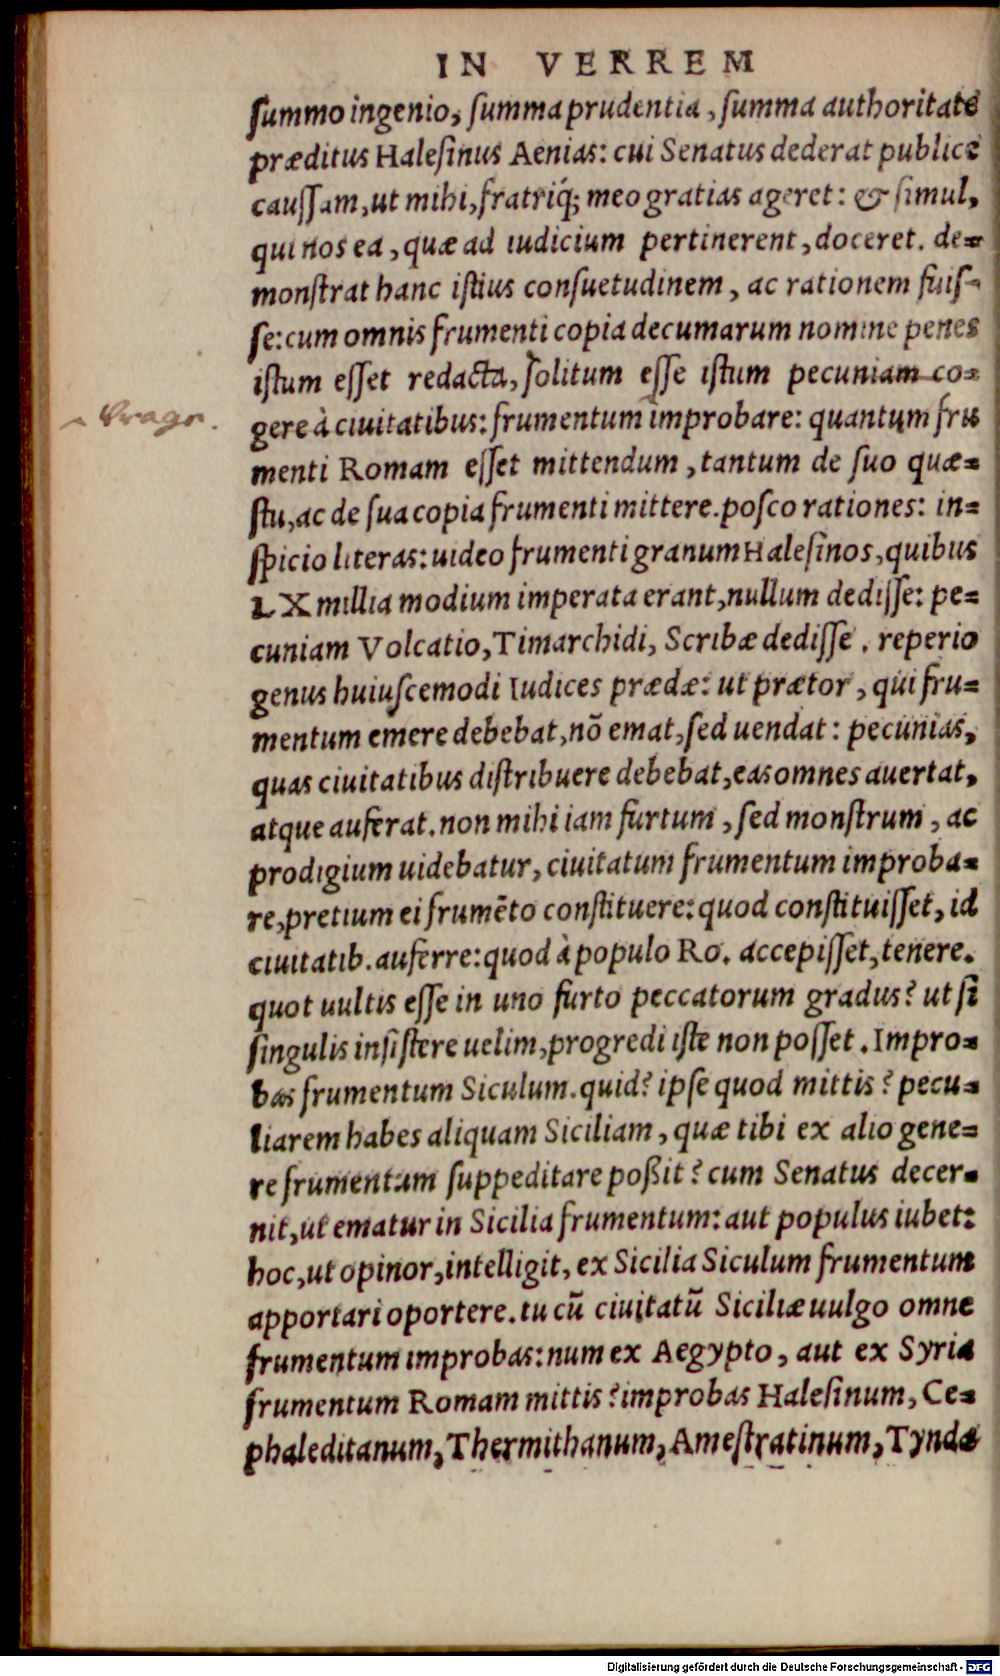 IN VERREM
summo ingenio, summa prudentia, summa authoritate
præditus Halesinus Aenias: cui Senatus dederat publice
caussam, ut mihi, fratriq́; meo gratias ageret: & simul,
qui nos ea, quæ ad iudicium pertinerent, doceret. de=
monstrat hanc istius consuetudinem, ac rationem fuis-
se: cum omnis frumenti copia decumarum nomine penes
istum esset redacta, solitum esse istum pecuniam co=
gere à ciuitatibus: frumentum improbare: quantum fru
menti Romam esset mittendum, tantum de suo quæ=
stu, ac de sua copia frumenti mittere. posco rationes: in=
spicio literas: uideo frumenti granum Halesinos, quibus
LX millia modium imperata erant, nullum dedisse: pe=
cuniam Volcatio, Timarchidi, Scribæ dedisse. reperio
genus huiuscemodi Iudices prædæ: ut prætor, qui fru=
mentum emere debebat, nõ emat, sed uendat: pecunias,
quas ciuitatibus distribuere debebat, eas omnes auertat,
atque auferat. non mihi iam furtum, sed monstrum, ac
prodigium uidebatur, ciuitatum frumentum improba=
re, pretium ei frumẽto constituere: quod constituisset, id
ciuitatib. auferre: quod à populo Ro. accepisset, tenere.
quot uultis esse in uno furto peccatorum gradus? ut si
singulis insistere uelim, progredi iste non posset. Impro=
bas frumentum Siculum. quid? ipse quod mittis? pecu=
liarem habes aliquam Siciliam, quæ tibi ex alio gene=
re frumentum suppeditare poßit? cum Senatus decer=
nit, ut ematur in Sicilia frumentum: aut populus iubet:
hoc, ut opinor, intelligit, ex Sicilia Siculum frumentum
apportari oportere. tu cũ ciuitatũ Siciliæ uulgo omne
frumentum improbas: num ex Aegypto, aut ex Syria
frumentum Romam mittis? improbas Halesinum, Ce=
phaleditanum, Thermithanum, Amestratinum, Tyndæ
Digitalisierung gefördert durch die Deutsche Forschungsgemeinschaft - DFG